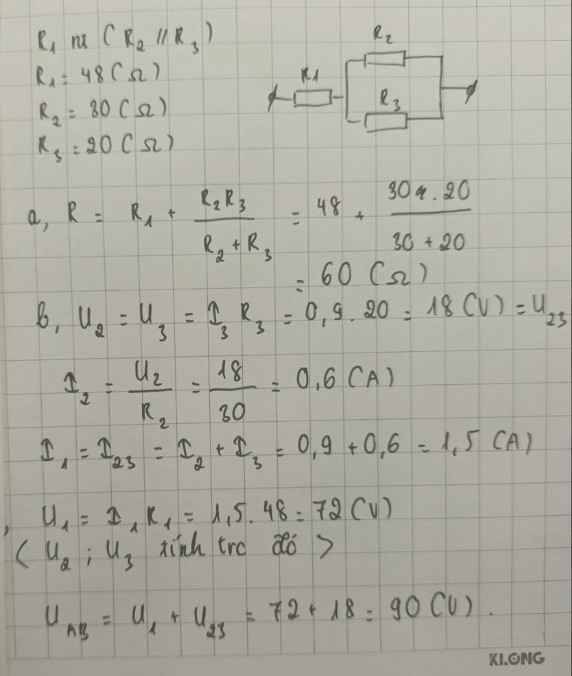 R₁ nt (R₂ // R₃)
R₁ = 48 (Ω)
R₂ = 30 (Ω)
R₃ = 20 (Ω)
R₂
R₁
R₃
a, R = R₁ + R₂R₃ / (R₂ + R₃) = 48 + 30.20 / (30 + 20)
= 60 (Ω)
b, U₂ = U₃ = I₃ R₃ = 0,9 . 20 = 18 (V) = U₂₃
I₂ = U₂ / R₂ = 18 / 30 = 0,6 (A)
I₁ = I₂₃ = I₂ + I₃ = 0,9 + 0,6 = 1,5 (A)
, U₁ = I₁ R₁ = 1,5 . 48 = 72 (V)
< U₂ ; U₃ tính trc đó >
U_AB = U₁ + U₂₃ = 72 + 18 = 90 (V).
KLONG